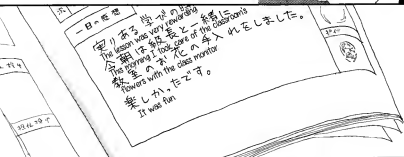 一日の感想
実りある学びの
The lesson was very rewarding
今朝は級長と一緒に
This morning I took care of the classroom's
教室のお花の手入れをしました。
flowers with the class monitor
楽しかったです。
It was fun